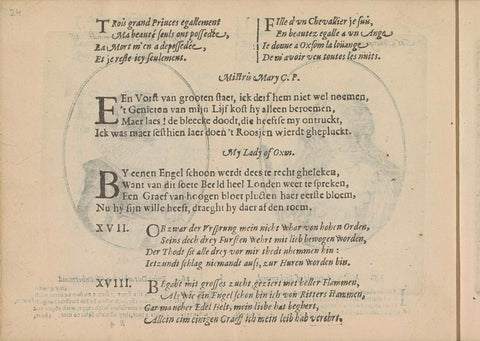 24
TRois grand Princes egallement
Ma beauté seuls ont possedée,
La Mort m'en a depossedée,
Et je reste icy seulement.
FIlle d'un Chevallier je suis,
En beautez egalle a un Ange
Ie donne a Oxfom la loüange
De m'avoir veu toutes les nuits.
Mistris Mary C. P.
EEn Vorst van grooten staet, ick derf hem niet wel noemen,
't Genieten van mijn Lijf kost hy alleen beroemen,
Maer laes! de bleecke doodt, die heefts my ontruckt,
Ick was maer sesthien iaer doen 't Roosjen wierdt gepluckt.
My Lady of Oxm.
BY eenen Engel schoon werdt dees te recht gheleken,
Want van dit soete Beeld heel Londen weet te spreken,
Een Graef van hoogen bloet pluckten haer eerste bloem,
Nu hy sijn wille heeft, draeght hy daer af den roem.
XVII. OB zwar der Vrsprung mein nicht whar von hohen Orden,
Seins doch drey Fursten wehrt mit lieb bewogen worden,
Der Thodt sie alle drey vor mir thedt nhemmen hin:
Ietzundt schlag niemandt auß, zur Huren worden bin.
XVIII. BEgabt mit grosses zucht geziert mit heller Flammen,
Als wie ein Engel schon bin ich von Ritters Stammen,
Gar mancher Edel Helt, mein liebe hat beghert,
Allein eim einigen Graeff ich mein leib hab verehrt.